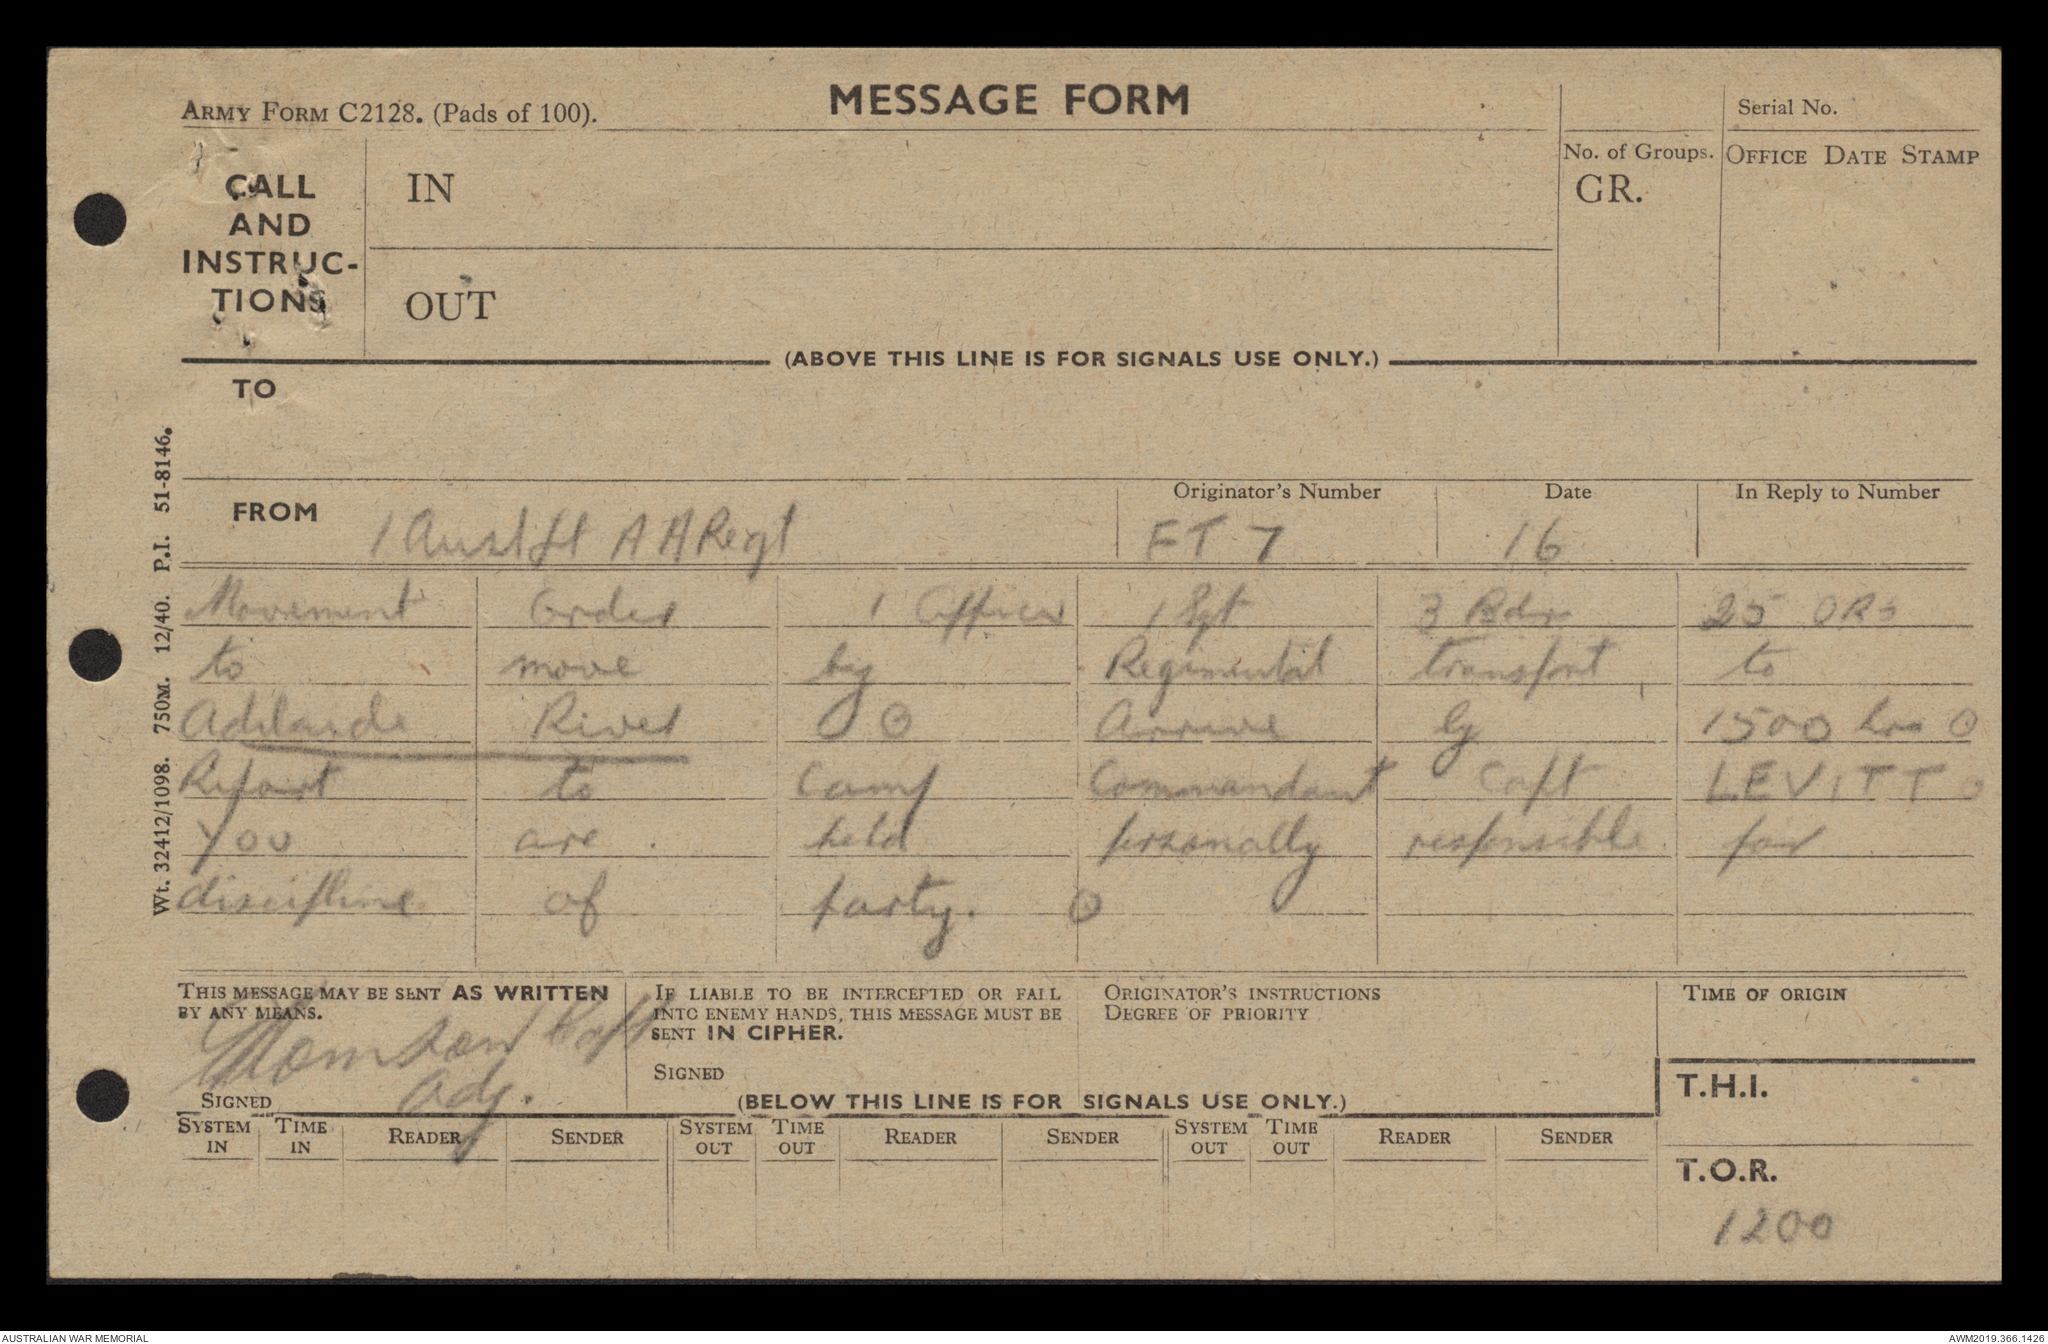 ARMY FORM C2128. (Pads of 100).
MESSAGE FORM
Serial No.
CALL AND INSTRUC-TIONS
IN
OUT
No. of Groups.
GR.
OFFICE DATE STAMP
(ABOVE THIS LINE IS FOR SIGNALS USE ONLY.)
TO
FROM 1 Aust Lt A A Regt
Originator's Number
FT 7
Date
16
In Reply to Number
Movement Order 1 Officer 1 Sgt 3 Bdr 25 ORs
to move by Regimental transport to
Adelaide River O Arrive by 1500 hrs O
Report to Camp Commandant Capt LEVITT O
You are held personally responsible for
discipline of party. O
THIS MESSAGE MAY BE SENT AS WRITTEN
BY ANY MEANS.
Thomson Capt
Adj.
SIGNED
IF LIABLE TO BE INTERCEPTED OR FALL
INTO ENEMY HANDS, THIS MESSAGE MUST BE
SENT IN CIPHER.
SIGNED
ORIGINATOR'S INSTRUCTIONS
DEGREE OF PRIORITY
TIME OF ORIGIN
T.H.I.
(BELOW THIS LINE IS FOR SIGNALS USE ONLY.)
SYSTEM IN TIME IN READER SENDER SYSTEM OUT TIME OUT READER SENDER SYSTEM OUT TIME OUT READER SENDER
T.O.R.
1200
Wt. 32412/1098. 750M. 12/40. P.I. 51-8146.
AUSTRALIAN WAR MEMORIAL
AWM2019.366.1426